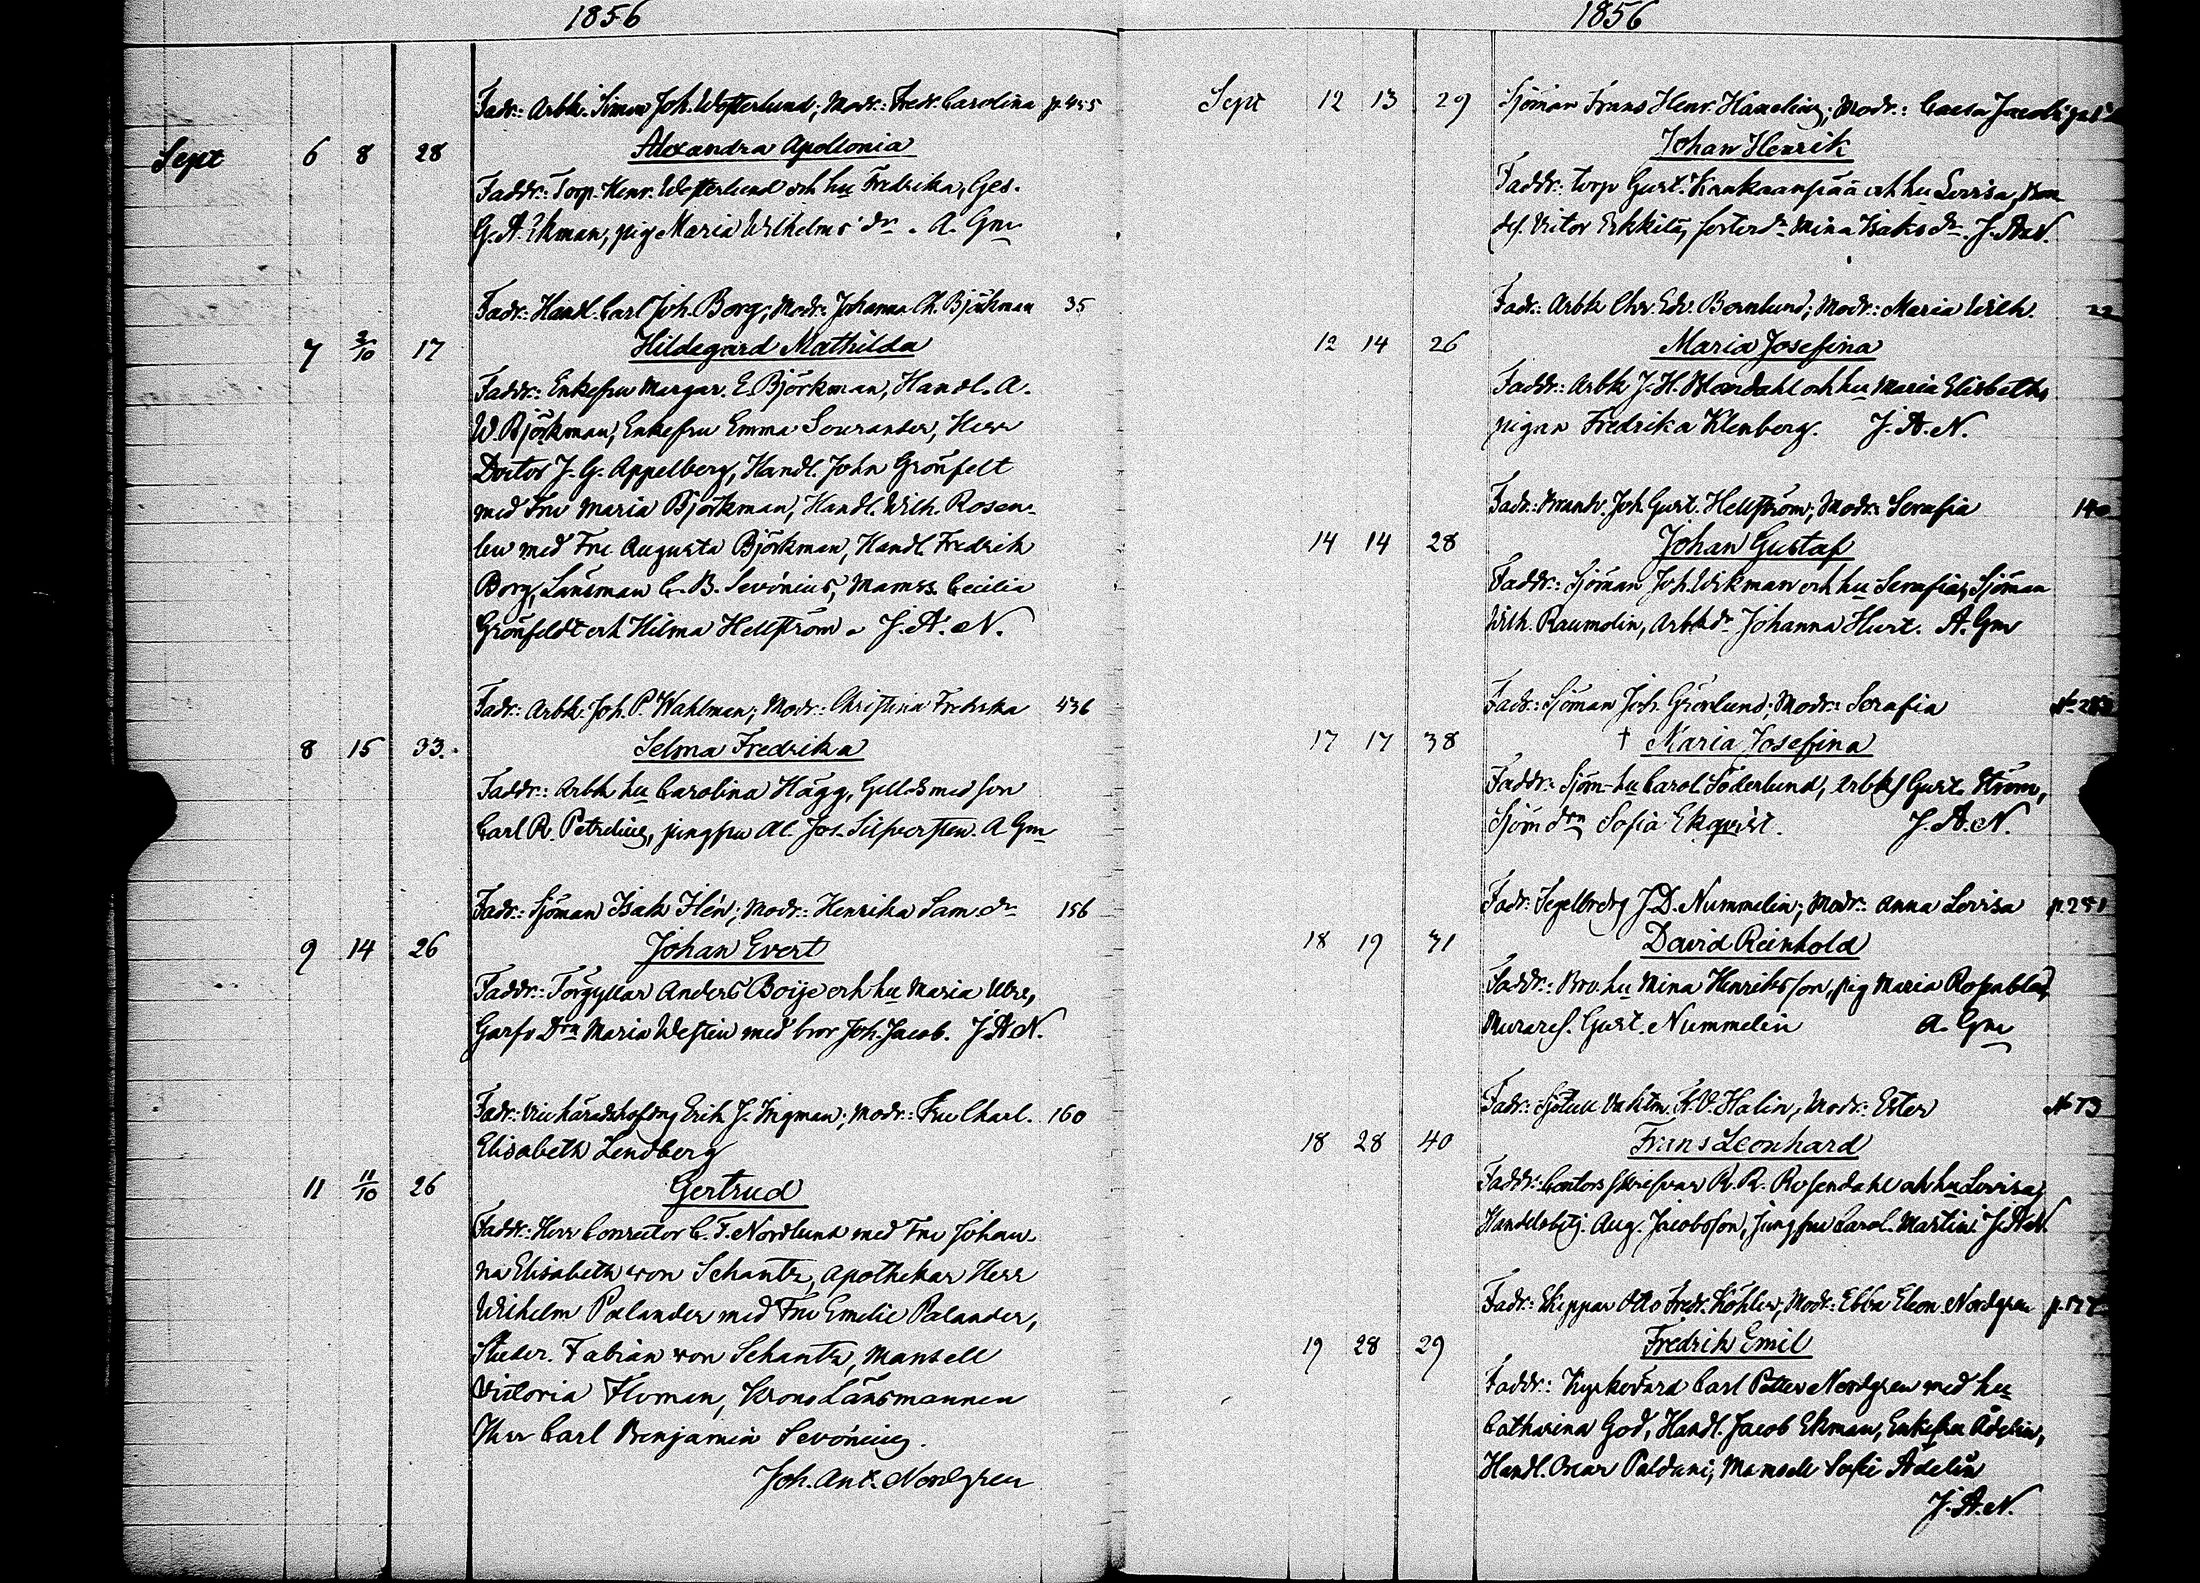 1856
Fadr: Arbk. Simon Joh. Westerlund; Modr: Fredr. Carolina p. 455
Sept 6 8 28 Alexandra Apollonia
Faddr: Torp. Henr. Westerlund och hu Fredrika, Ges.
G. A. Ekman, pig Maria Wilhelms dr. A. Gm
Fadr: Handl. Carl Joh. Borg; Modr: Johanna Ch. Björkman 35
7 5/10 17 Hildegard Mathilda
Faddr: Enkefru Margar. E. Björkman, Handl. A.
W. Björkman, Enkefru Emma Sourander, Herr
Doctor J. G. Appelberg, Handl. John Grönfelt
med Fru Maria Björkman, Handl. Wilh. Rosen-
lew med Fru Augusta Björkman, Handl. Fredrik
Borg, Länsman C. B. Sevónius, Mamss. Cecilia
Grönfeldt och Hilma Hellström. J. A. N.
Fadr: Arbk. Joh. P. Wahlman; Modr: Christina Fredrika 436
8 15 33. Selma Fredrika
Faddr: Arbk hu Carolina Hägg, Gulds med son
Carl R. Petrelius, jungfru Al. Jos. Silfversten. A Gm
Fadr: Sjöman Isak Ilén; Modr: Henrika Sam. dr 156
9 14 26 Johan Evert
Faddr: Förgyllar Anders Boije och hu Maria Ulr.,
Garfv. Drn Maria Westin med bror Joh. Jacob. J. A. N.
Fadr: Vice häradshöfdng Erik J. Ingman; Modr: Fru Charl. 160
Elisabeth Lindberg
11 11/10 26 Gertrud
Faddr: Herr Conrector C. F. Nordlund med Fru Johan-
na Elisabeth von Schantz, Apothekar Herr
Wilhelm Palander med Fru Emelie Palander,
Studer. Fabian von Schantz, Mansell
Victoria Floman, Krono Länsmannen
Herr Carl Benjamin Sevónius.
Joh. Ant. Nordgren
1856
Sept 12 13 29 Sjöman Frans Henr. Hamelin; Modr: Caisa Jacob
Johan Henrik
Faddr: torp Gust. Knukaanpää och hu Lovisa,
Victor Erkkilä, foster dr Mina Isaks dr. J. A. N.
Fadr: Arbk Chr. Edv. Bernlund; Modr: Maria Wilh. 22
12 14 26 Maria Josefina
Faddr: Arbk J. H. Blomdahl och hu Maria Elisbeth,
pigan Fredrika Klenberg. J. A. N.
Fadr: Brandv. Joh Gust. Hellström; Modr: Serafia 140
14 14 28 Johan Gustaf
Faddr: Sjöman Joh. Wikman och hu Serafia, Sjöman
Wilh. Raumolin, Arbk dr Johanna Hurt. A. Gm
Fadr: Sjöman Joh. Grönlund; Modr: Serafia
17 17 38 † Maria Josefina
Faddr: Sjöm-hu Carol. Söderlund, Arbks Gust. Ström,
Sjöm drn Sofia Ekqvist. J. A. N.
Fadr: Segelbrdrg J. D. Nummelin; Modr: Anna Lovisa p. 251
18 19 31 David Reinhold
Faddr: Brv. hu Mina Henriksson, pig Maria Rosnblad,
Murares. Gust. Nummelin A. Gm
Fadr: Sjötull Vaktm. K. V. Halin, Modr: Ester № 73
18 28 40 Frans Leonhard
Faddr: Contors skrifvar R. R. Rosendahl och hu Lovisa,
Handelsbtj. Aug. Jacobsson, jungfru Carol. Martin J. A. N.
Fadr: Skeppar Otto Fredr. Köhler, Modr: Ebba Eleon. Nordgren
19 28 29 Fredrik Emil
Faddr: Kyrkovärd Carl Petter Nordgren med hu
Catharina God, Handl. Jacob Ekman, Enkefru Ådelin,
Handl. Oscar Paldani, Mamsell Sofie Ådelin
J. A. N.